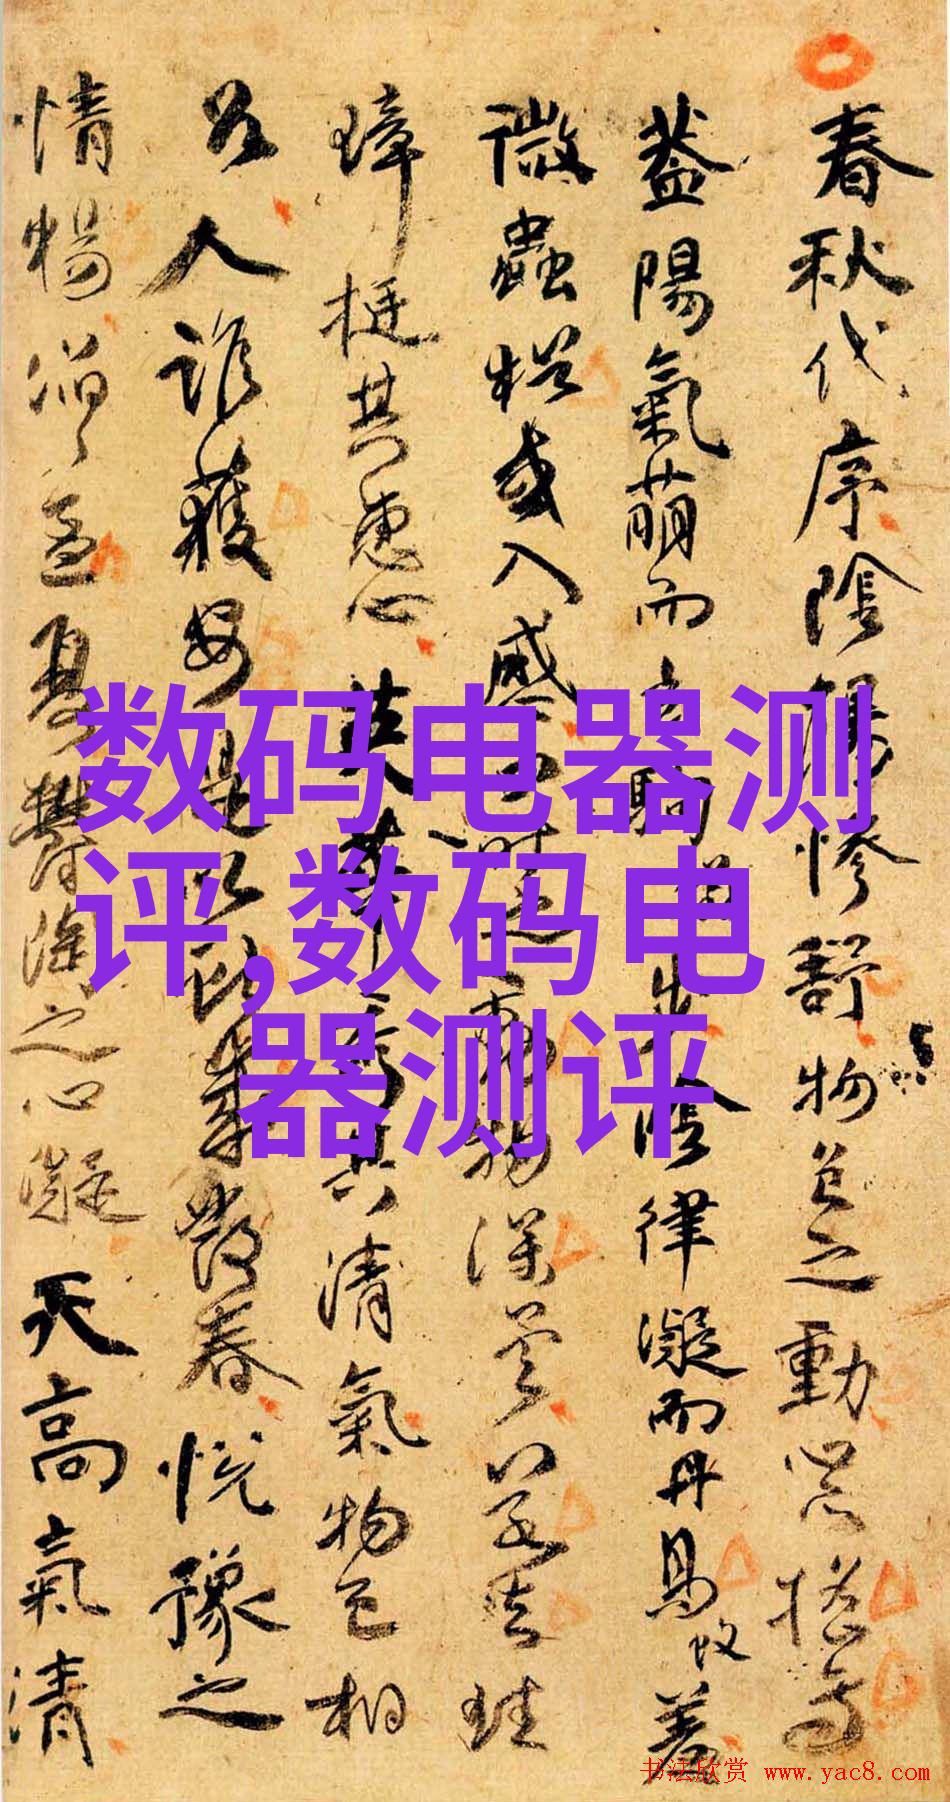 春秋代序陰陽惨舒物色之動心亦搖焉
蓋陽氣萌而玄駒步陰律凝而丹鳥羞
微蟲猶或入感四時之動物深矣若夫珪
璋挺其惠心英華秀其清氣物色相
召人誰獲安是以獻歲發春悅豫之
情暢滔滔孟夏鬱陶之心凝天高氣清
数码电器测
评,数码电
器测评
书法欣赏 www.yac8.com